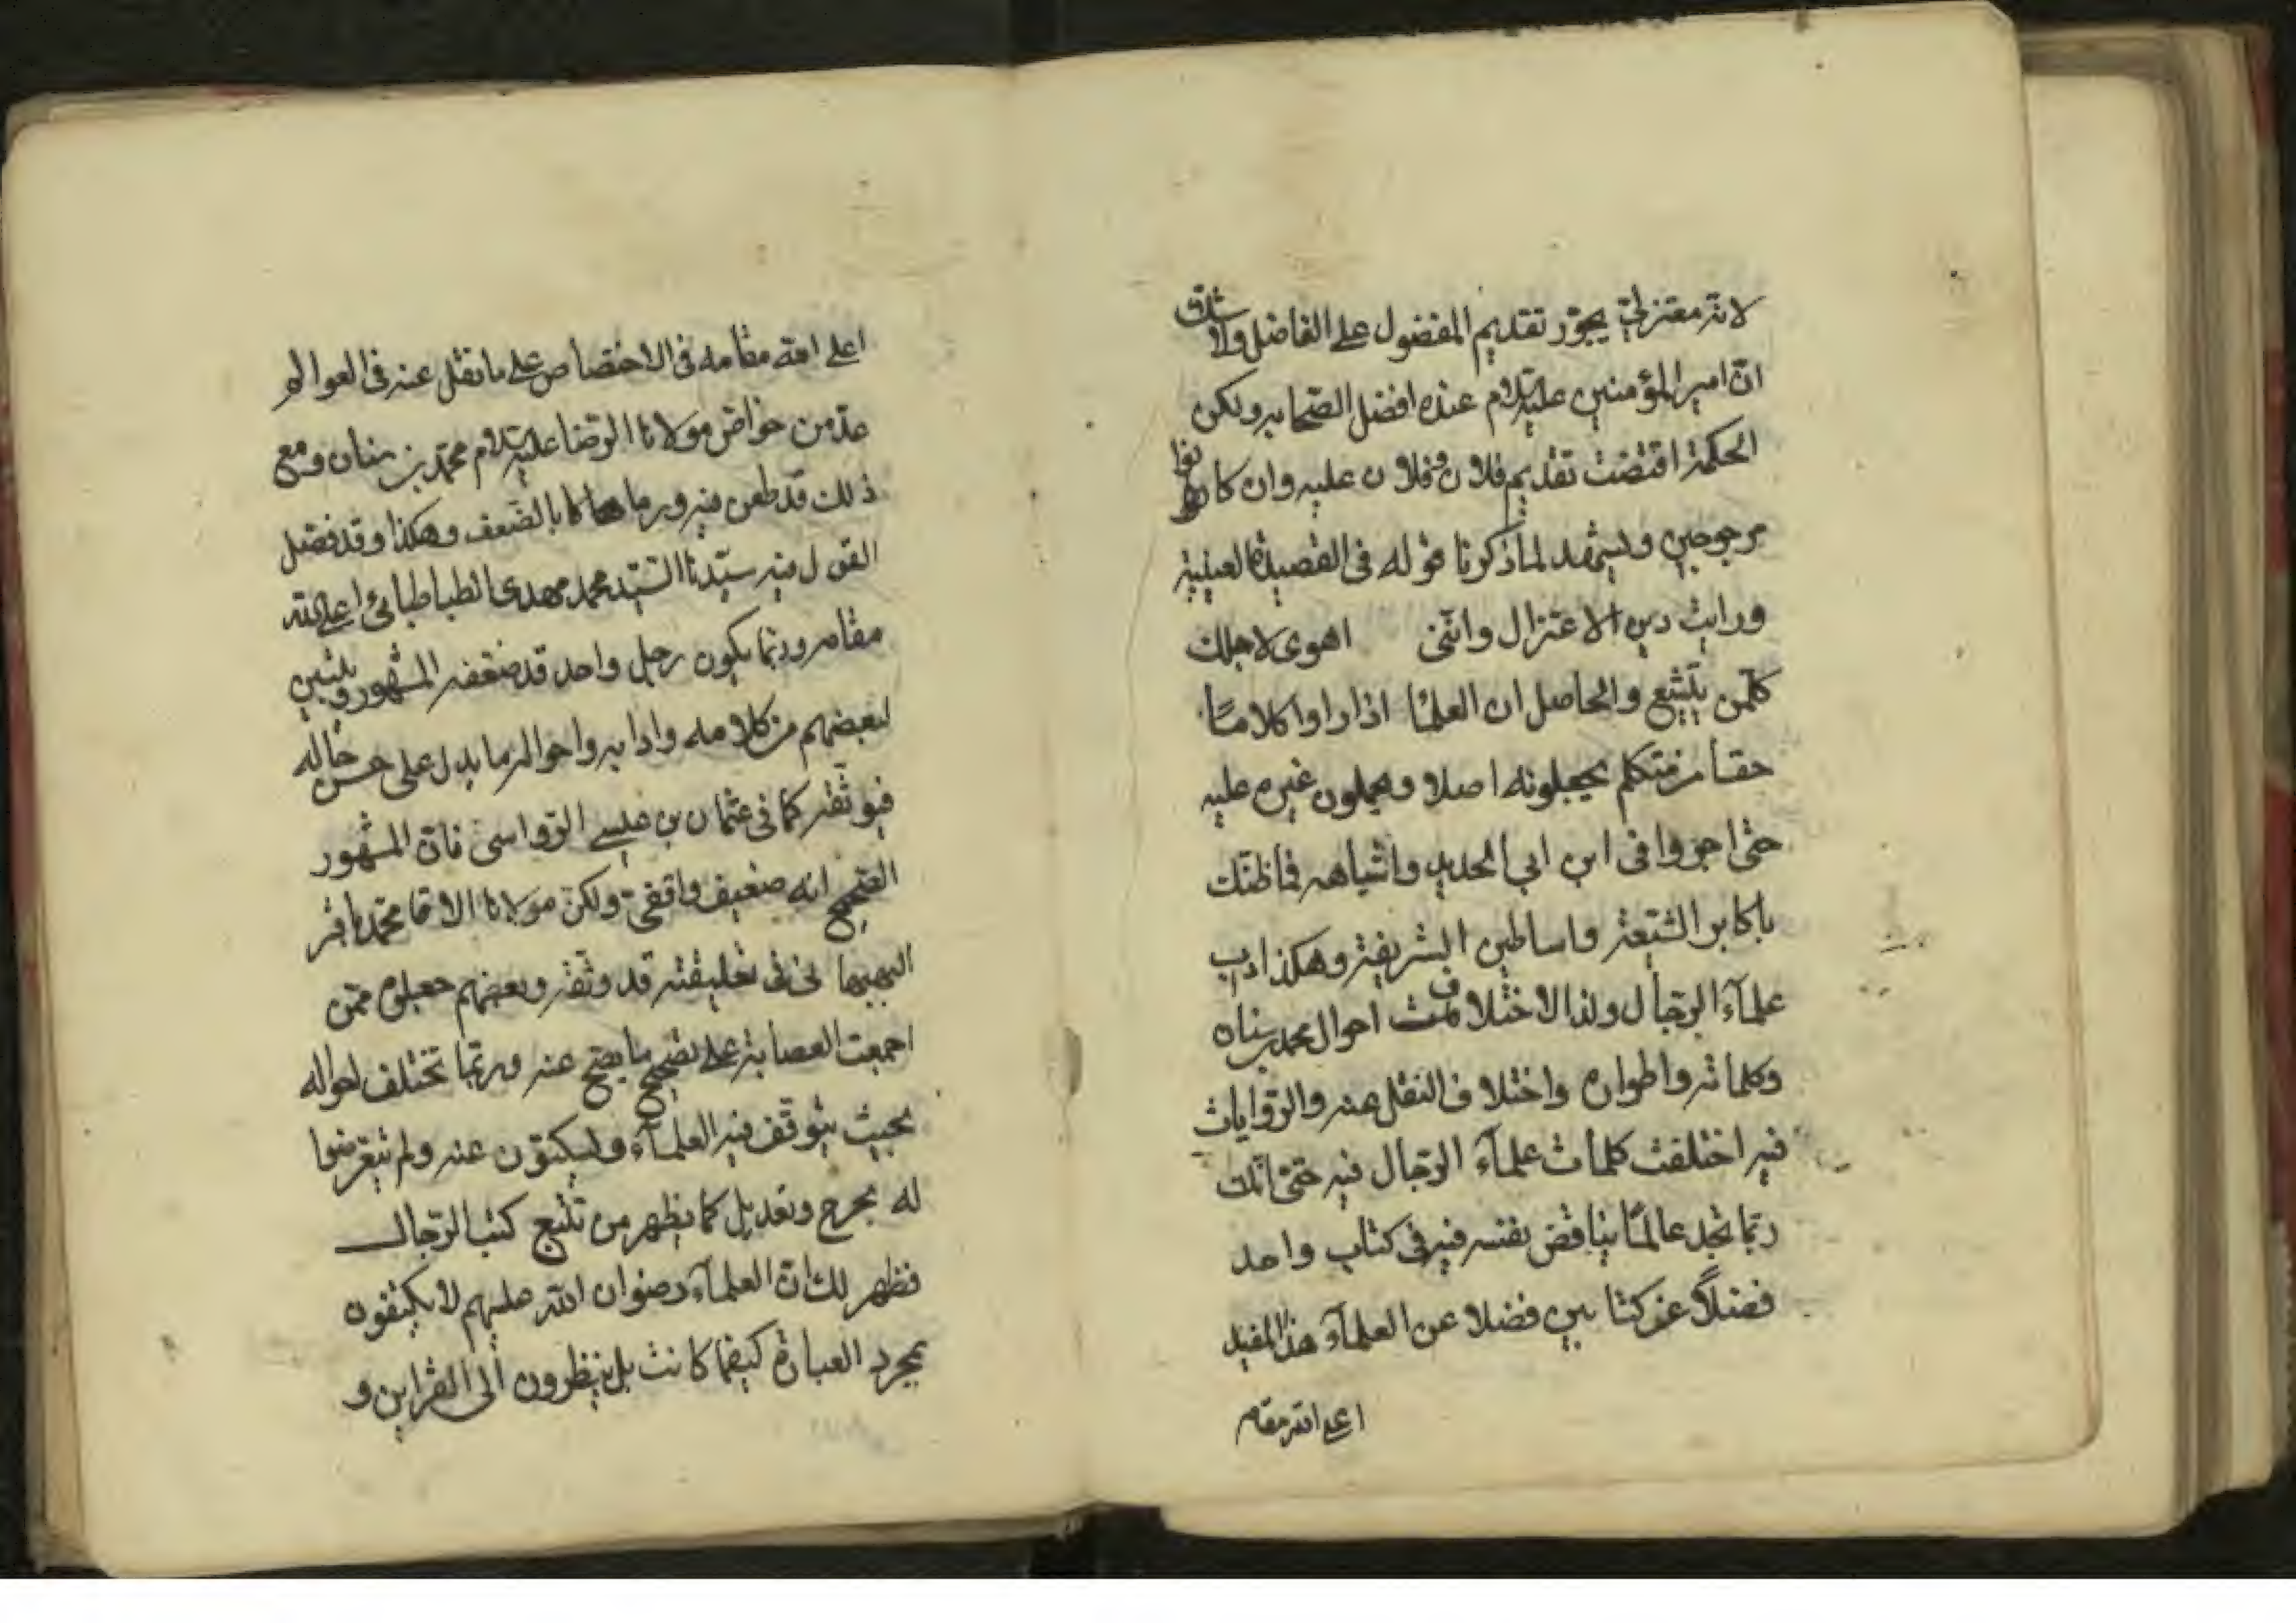 لانه معتزلی یجوّز تقدیم المفضول علی الفاضل ولا شک
انّ امیر المؤمنین علیه السلام عنده افضل الصّحابه ولکن
الحکمة اقتضت تقدیم فلان وفلان علیه وان کانوا
مرجوحین ویشهد لما ذکرنا قوله فی القصیدة العینیة
ورایت دین الاعتزال واننی اهوی لاجلک
کلّ من یتشیع والحاصل ان العلمآ اذا راوا کلاما
حقا من متکلم یجعلونه اصلا ویحملون غیره علیه
حتی اجروا فی ابن ابی الحدید واشباهه فما ظنّک
باکابر الشیعة واساطین الشریفة وهکذا داب
علمآء الرّجال ولذا لاختلاف احوال محمد بن سنان
وکلماته واطواره واختلاف النقل عنه والرّوایات
فیه اختلفت کلمات علمآء الرّجال فیه حتی انّک
ربّما تجد عالمًا یناقض نفسه فیه فی کتاب واحد
فضلاً عن کتابین فضلا عن العلمآء هذا المفید
اعلی الله مقامه
اعلی الله مقامه فی الاختصاص علی ما نقل عنه فی العوالم
عدّ من خواصّ مولانا الرّضا علیه السلام محمّد بن سنان ومع
ذلک قد طعن فیه ورماه بالضّعف وهکذا وقد فصّل
القول فیه سیّدنا السّیّد محمد مهدی الطباطبائی اعلی الله
مقامه وربّما یکون رجل واحد قد ضعفه المشهور ویتبین
لبعضهم من کلامه وادابه واحواله ما یدل علی حسن حاله
فیوثّقه کما فی عثمان بن عیسی الرّواسی فانّ المشهور
الصّحیح انه ضعیف واقفیّ ولکن مولانا الاقا محمّد باقر
البهبهانی فی تعلیقته قد وثّقه وبعضهم جعلوه ممّن
اجمعت العصابة علی تصحیح ما یصحّ عنه وربّما تختلف احواله
بحیث یتوقّف فیه العلمآء ولیسکتون عنه ولم یتعرضوا
له بجرح وتعدیل کما یظهر من تتبع کتب الرّجال
فظهر لک انّ العلمآء رضوان الله علیهم لا یکتفون
بمجرد العبارة کیفما کانت بل ینظرون الی القراین و